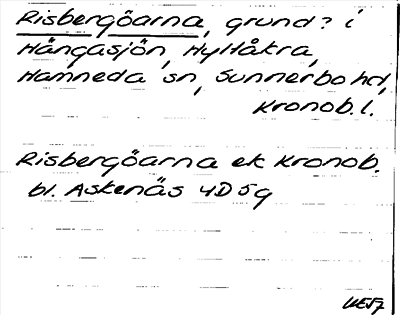 Risbergöarna, grund? i
Hångasjön, Hyltåkra,
Hamneda sn, Sunnerbo hd,
Kronob. l.
Risbergöarna ek Kronob.
bl. Askenäs 4D 5g